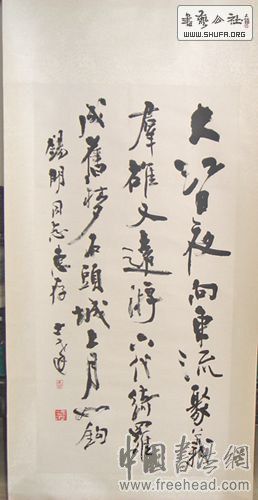 書藝公社
WWW.SHUFA.ORG
大江日夜向東流聚義
羣雄又遠游六代綺羅
成舊夢石頭城上月如鉤
錫明同志惠存
中國書法網
www.freehead.com